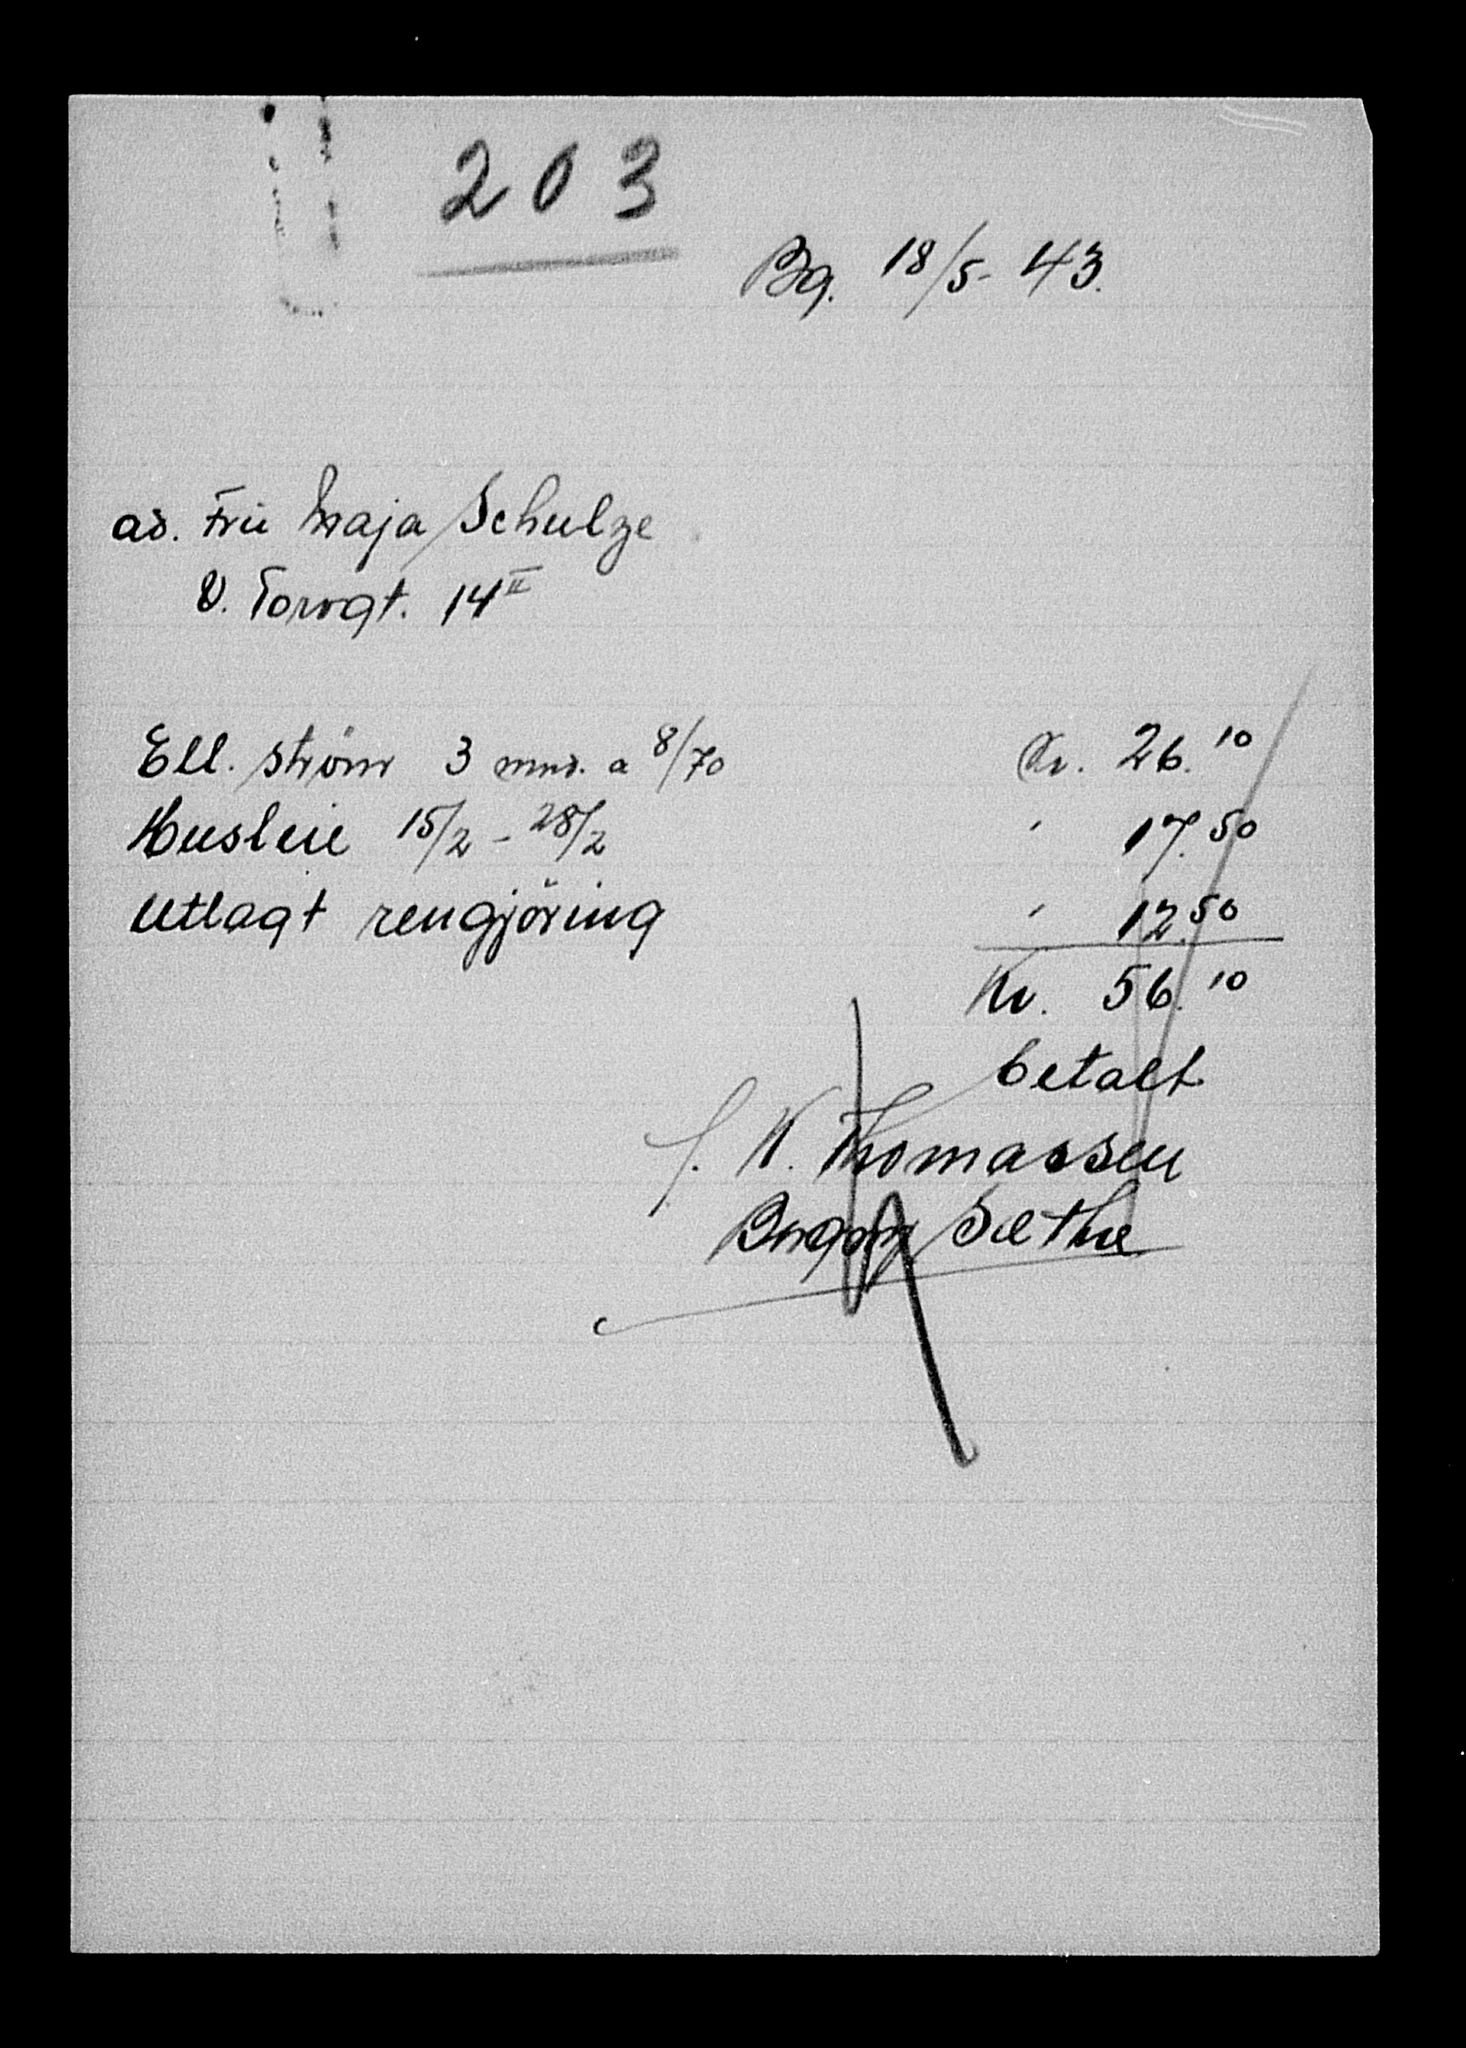 203
Bg. 18/5- 43.
ad. Frü Maja Schulze
V. Torvgt. 14 II
Ell. strøm 3 mnd. a 8/70 Kr. 26.10
Husleie 15/2 - 28/2 " 17.50
Utlagt rengjöring " 12.50
Kr. 56.10
betalt
f. K. Thomassen
Sæthre